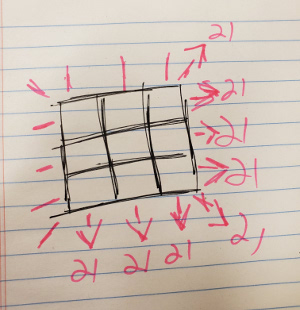 21
21
21
21
21 21 21 21